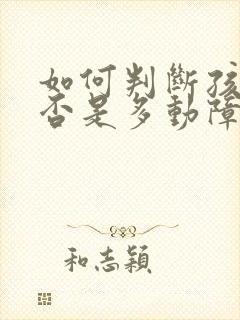 如何判斷孩
否是多動障
和志穎